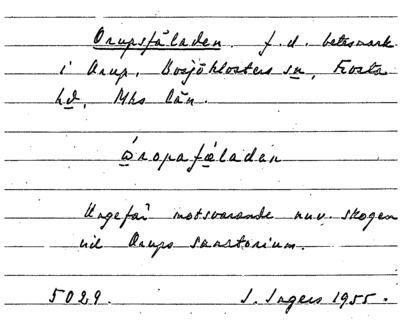 Orupsfäladen. f.d. betesmark
i Orup, Bosjöklosters sn, Frosta
hd, Mhs län.
òropafæladen
Ungefär motsvarande nuv. skogen
vid Orups sanatorium.
5029. I. Ingers 1955.